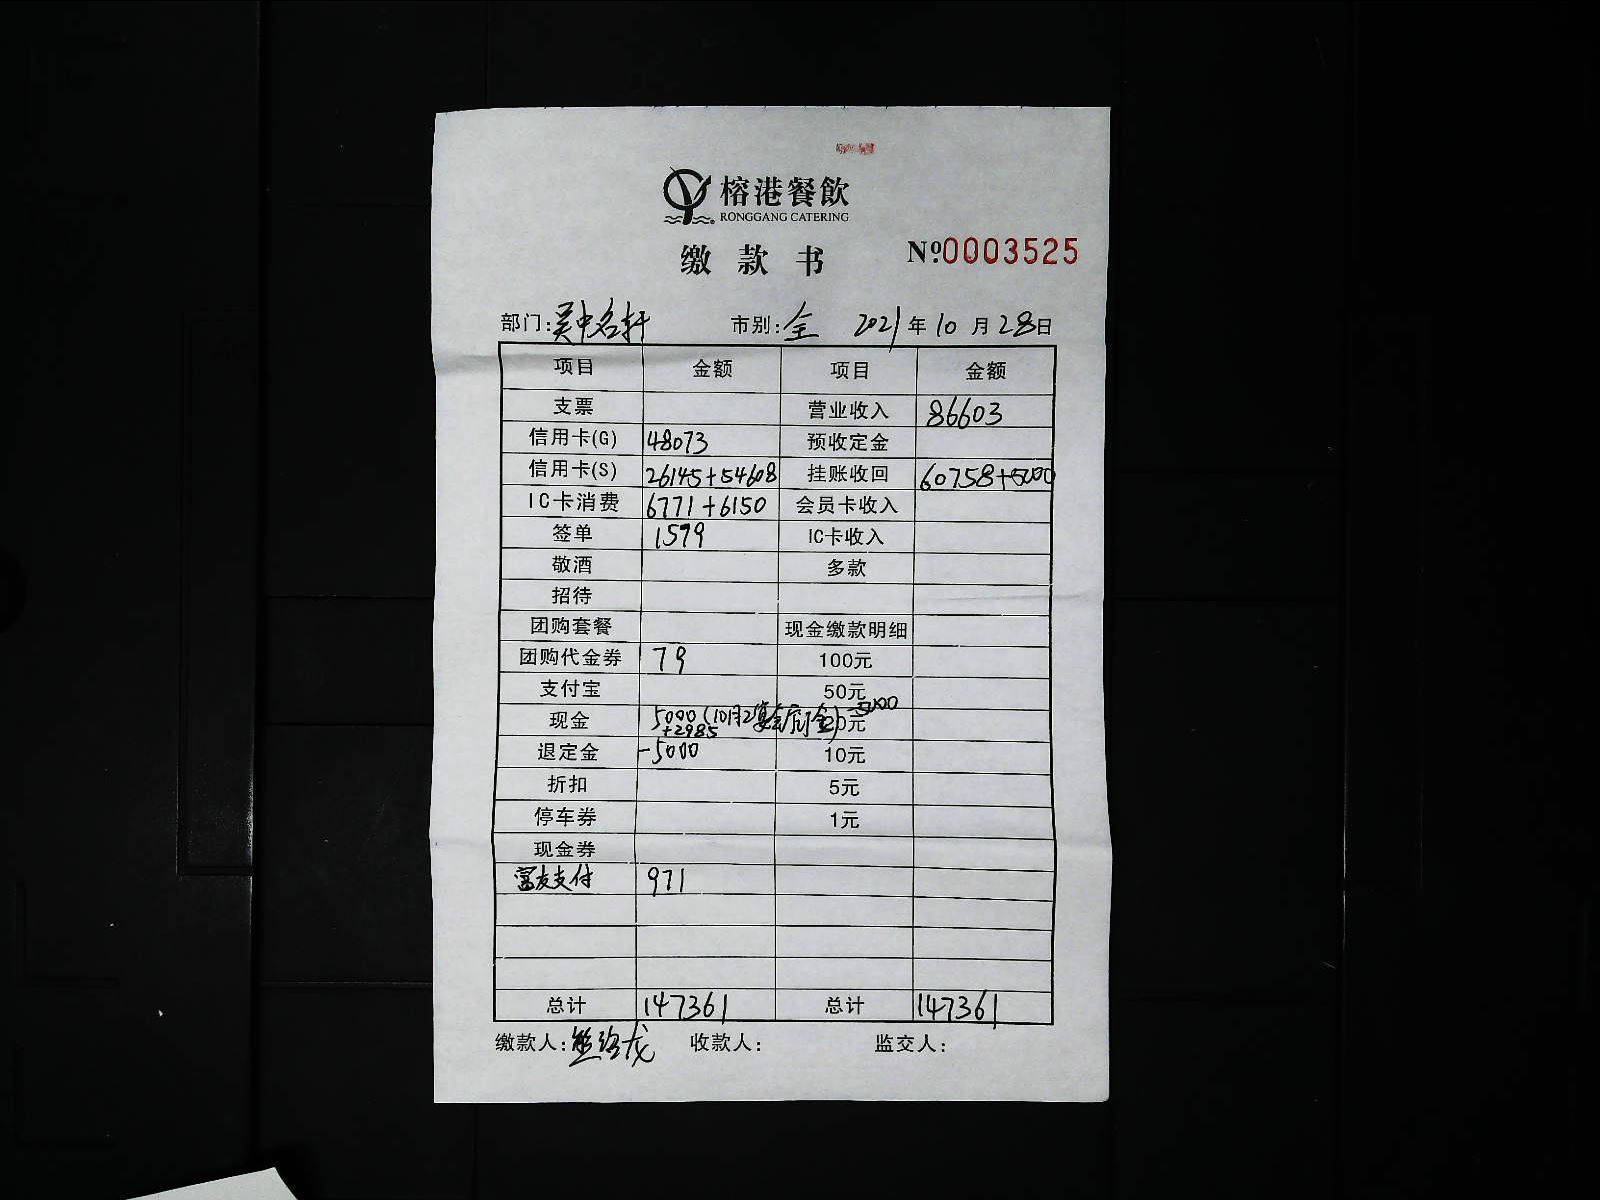 榕港餐飲
RONGGANG CATERING
缴款书 Nº0003525
部门:吴中名轩 市别:全 2021年10月28日
项目 金额 项目 金额
支票 营业收入 86603
信用卡(G) 48073 预收定金
信用卡(S) 26145+54608 挂账收回 60758+5000
IC卡消费 6771+6150 会员卡收入
签单 1579 IC卡收入
敬酒 多款
招待
团购套餐 现金缴款明细
团购代金券 79 100元
支付宝 50元
现金 5000(10月2宴会厅订金)-5000 0元
+2985
退定金 -5000 10元
折扣 5元
停车券 1元
现金券
富友支付 971
总计 147361 总计 147361
缴款人:熊 龙 收款人: 监交人: